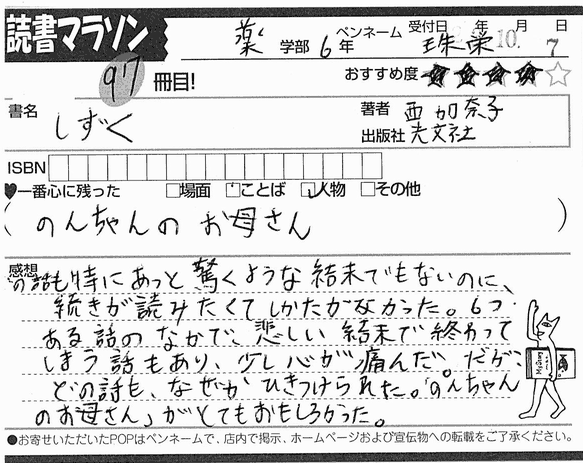 読書マラソン
薬 学部 6年 ペンネーム 珠栄 受付日 年 10月 7日
97冊目!
おすすめ度 ★★★★☆
書名 しずく
著者 西加奈子
出版社 光文社
ISBN
♥一番心に残った □場面 □ことば ☑人物 □その他
(のんちゃんのお母さん)
感想
の話も特にあっと驚くような結末でもないのに、
続きが読みたくてしかたがなかった。6つ
ある話のなかで、悲しい結末で終わって
しまう話もあり、少し心が痛んだ。だが、
どの話も、なぜかひきつけられた。「のんちゃん
のお母さん」がとてもおもしろかった。
●お寄せいただいたPOPはペンネームで、店内で掲示、ホームページおよび宣伝物への転載をご了承ください。